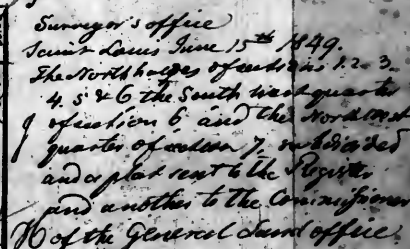 Surveyor's office
Saint Louis June 15th 1849.
The North halves of sections 1. 2. 3.
4. 5 & 6 the South west quarter
of section 6 and the North West
quarter of section 7, subdivided
and a plat sent to the Register
and another to the Commissioner
of the General Land office.